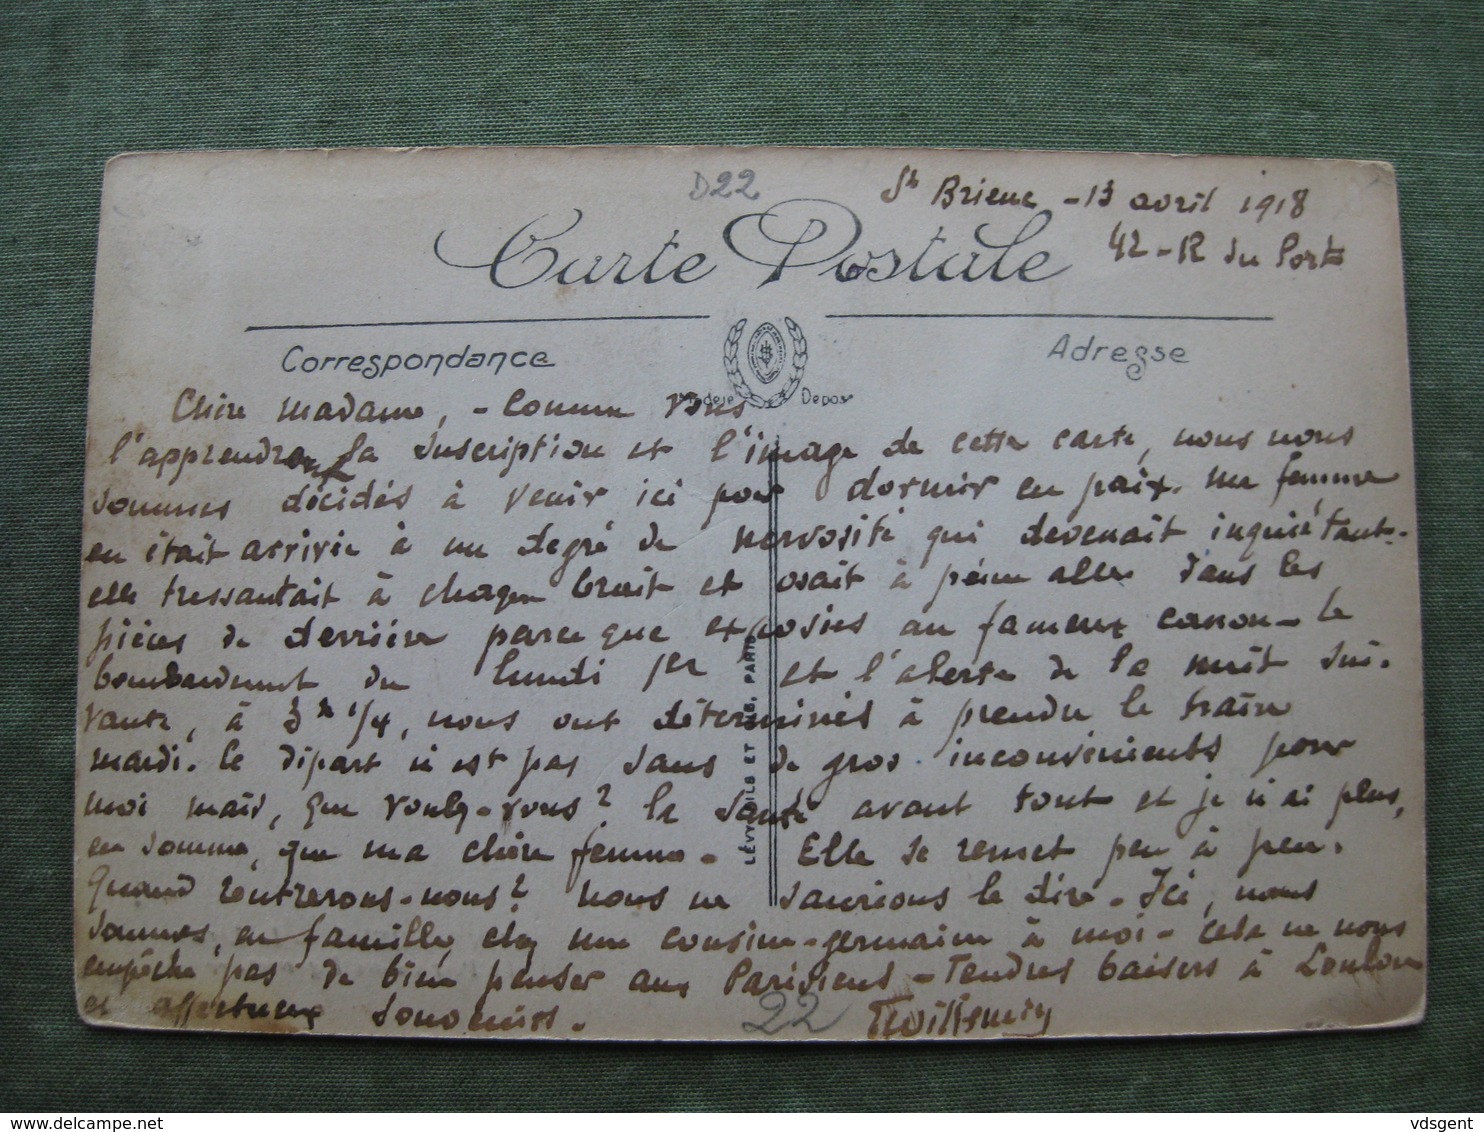 D22
St Brieuc - 13 avril 1918
42 - R du Port
Carte Postale
Correspondance
Adresse
Modèle Déposé
Chère madame, - Comme vous
l'apprendront la suscription et l'image de cette carte, nous nous
sommes décidés à venir ici pour dormir en paix. Ma femme
en était arrivée à un degré de nervosité qui devenait inquiétant -
elle tressautait à chaque bruit et osait à peine aller dans les
pièces de derrière parce que exposées au fameux canon - le
bombardement du lundi 1er et l'alerte de la nuit sui-
vante, à 3h 1/4, nous ont déterminés à prendre le train
mardi. Ce départ n'est pas sans de gros inconvénients pour
moi mais, que voulez-vous? la santé avant tout et je n'ai plus,
en somme, que ma chère femme - Elle se remet peu à peu.
Quand rentrerons-nous? nous ne saurions le dire - Ici, nous
sommes en famille, chez une cousine-germaine à moi - cela ne nous
empêche pas de bien penser aux Parisiens - Tendres baisers à Loulou
et affectueux souvenirs.
LÉVY FILS ET Cie, PARIS
22
vdsgent